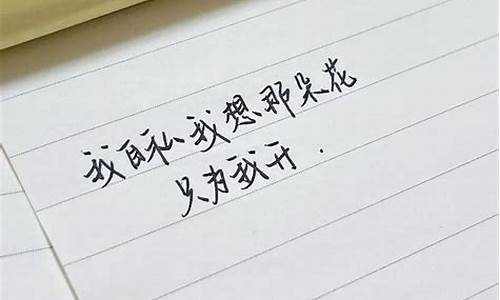 我自私我想那朵花
只为我开.